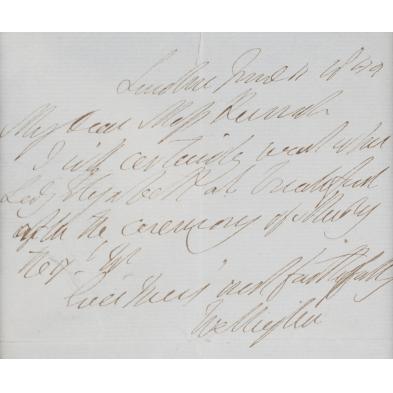 London June 11 1849
My Dear Miss
I will certainly wait upon
Lady Elizabeth at breakfast
after the ceremony of
next
Ever Yours most faithfully
Wellington